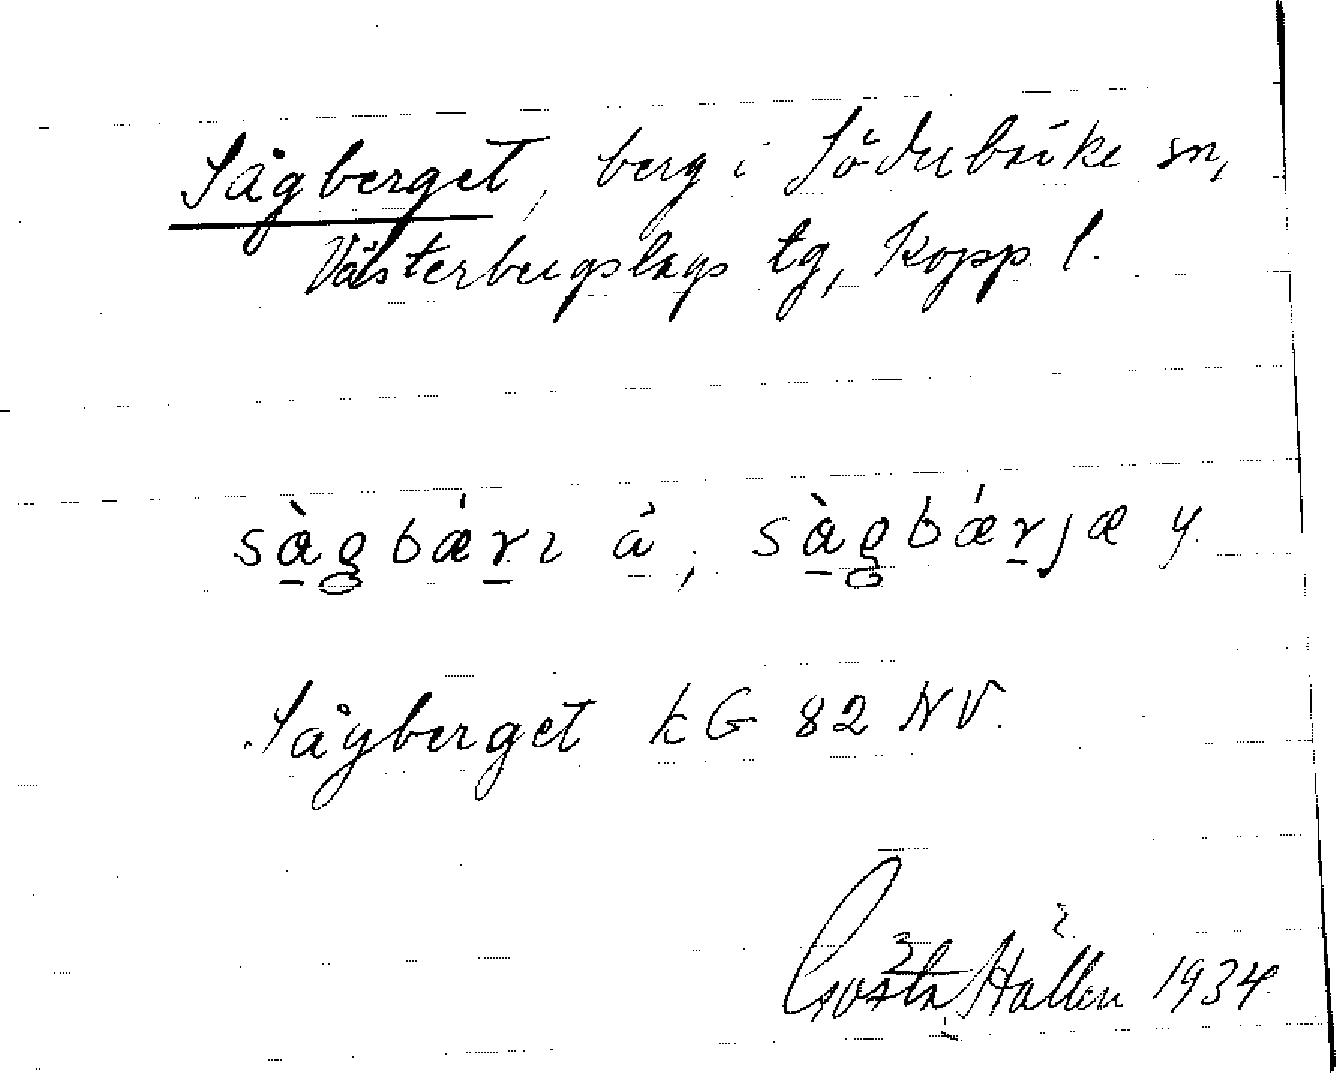 Sågberget, berg i Söderbärke sn,
Västerbergslags tg, Kopp. l.
sàgbǽrı å, sàgbǽrjæ y.
Sågberget kG 82 NV.
Gösta Hallén 1934.